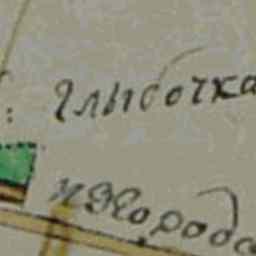 : Глыбочка
изгорода